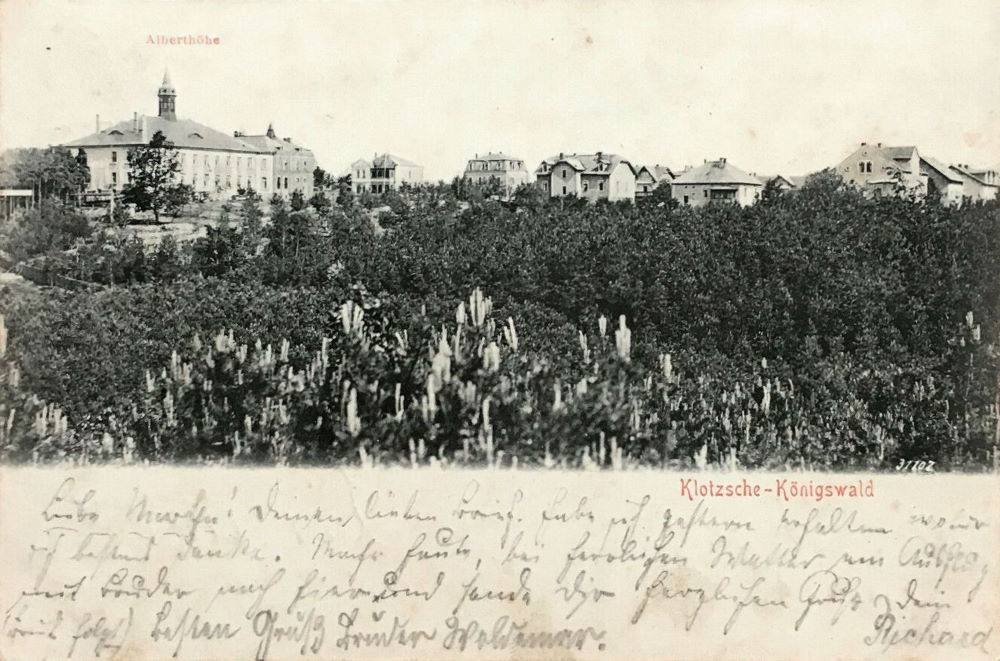 Alberthöhe
31702
Klotzsche-Königswald
Liebe Martha! Deinen lieben Brief. habe ich gestern erhalten wofür
ich bestens danke. Mache heute, bei herrlichen Wetter ein Ausflug
mit Bruder nach hier und sende dir herzlichen Gruß dein
(Brief folgt) Besten Gruß Bruder Woldemar. Richard